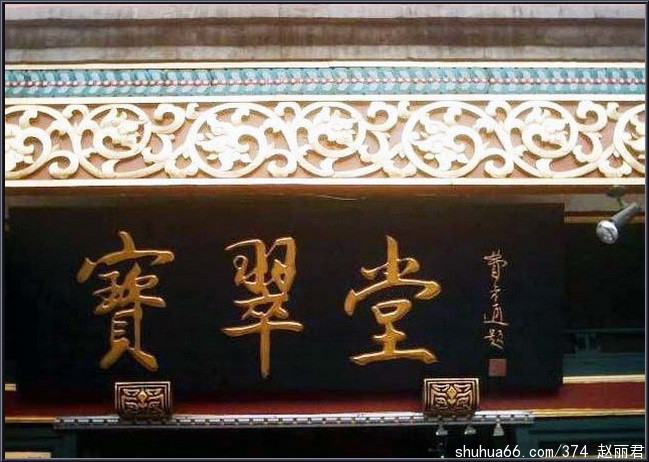 寶翠堂
費孝通題
shuhua66.com/374 赵丽君